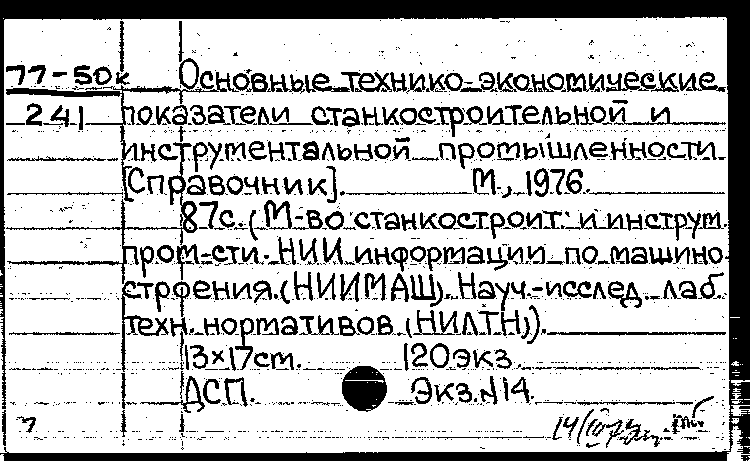 77-50к Основные технико-экономические
241 показатели станкостроительной и
инструментальной промышленности
[Справочник]. М., 1976.
87с. (М-во станкостроит. и инструм.
пром-сти. НИИ информации по машино-
строения. (НИИМАШ). Науч.-исслед. лаб.
техн. нормативов (НИЛТН)).
13×17см. 120экз.
ДСП. Экз.№14.
7 14/